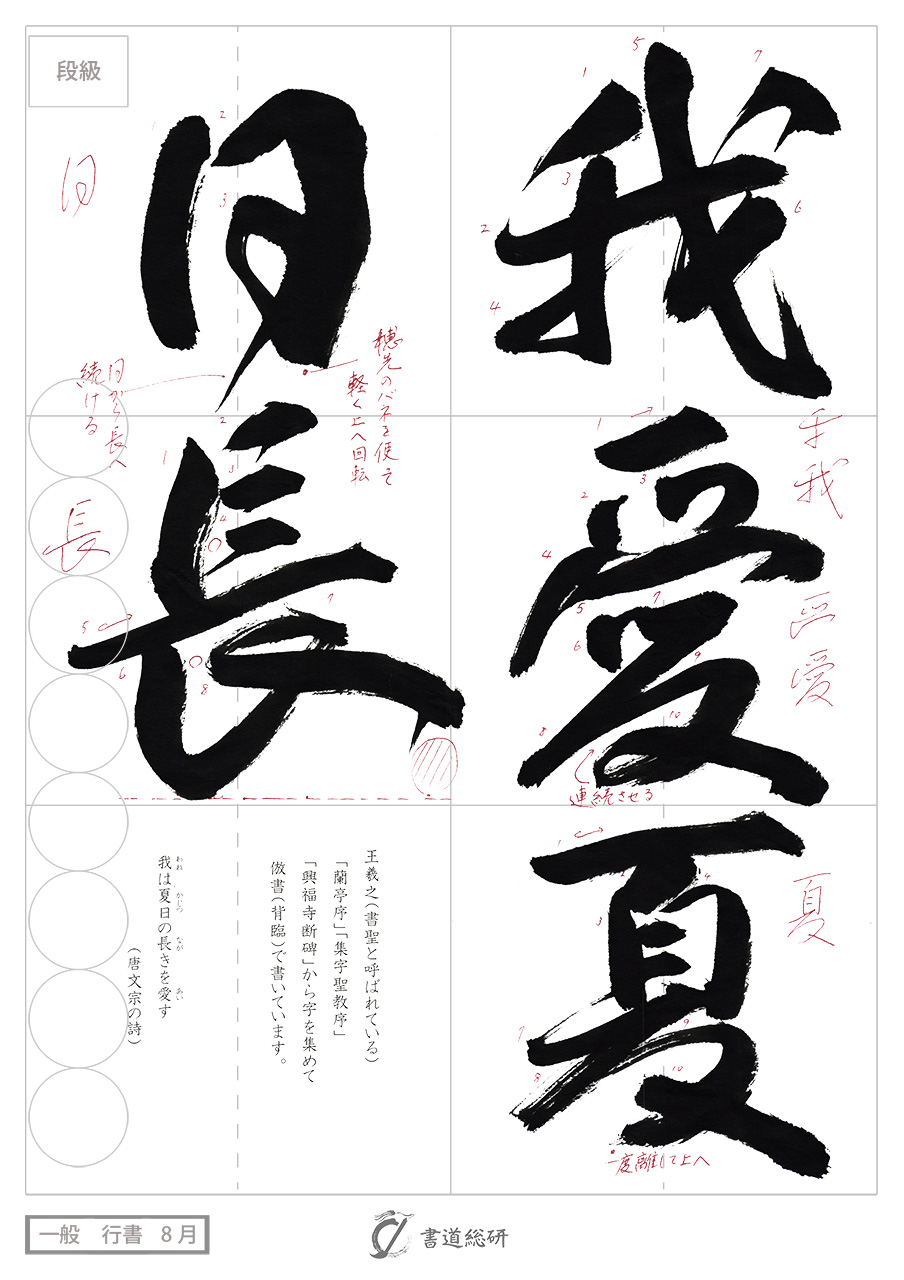 我愛夏
日長
段級
穂先のバネを使って
軽く上へ回転
日から長へ
続ける
日
長
手
我
愛
夏
連続させる
一度離して上へ
王羲之(書聖と呼ばれている)
「蘭亭序」「集字聖教序」
「興福寺断碑」から字を集めて
倣書(背臨)で書いています。
我は夏日の長きを愛す
われ かじつ なが あい
(唐文宗の詩)
一般 行書 8月
書道総研